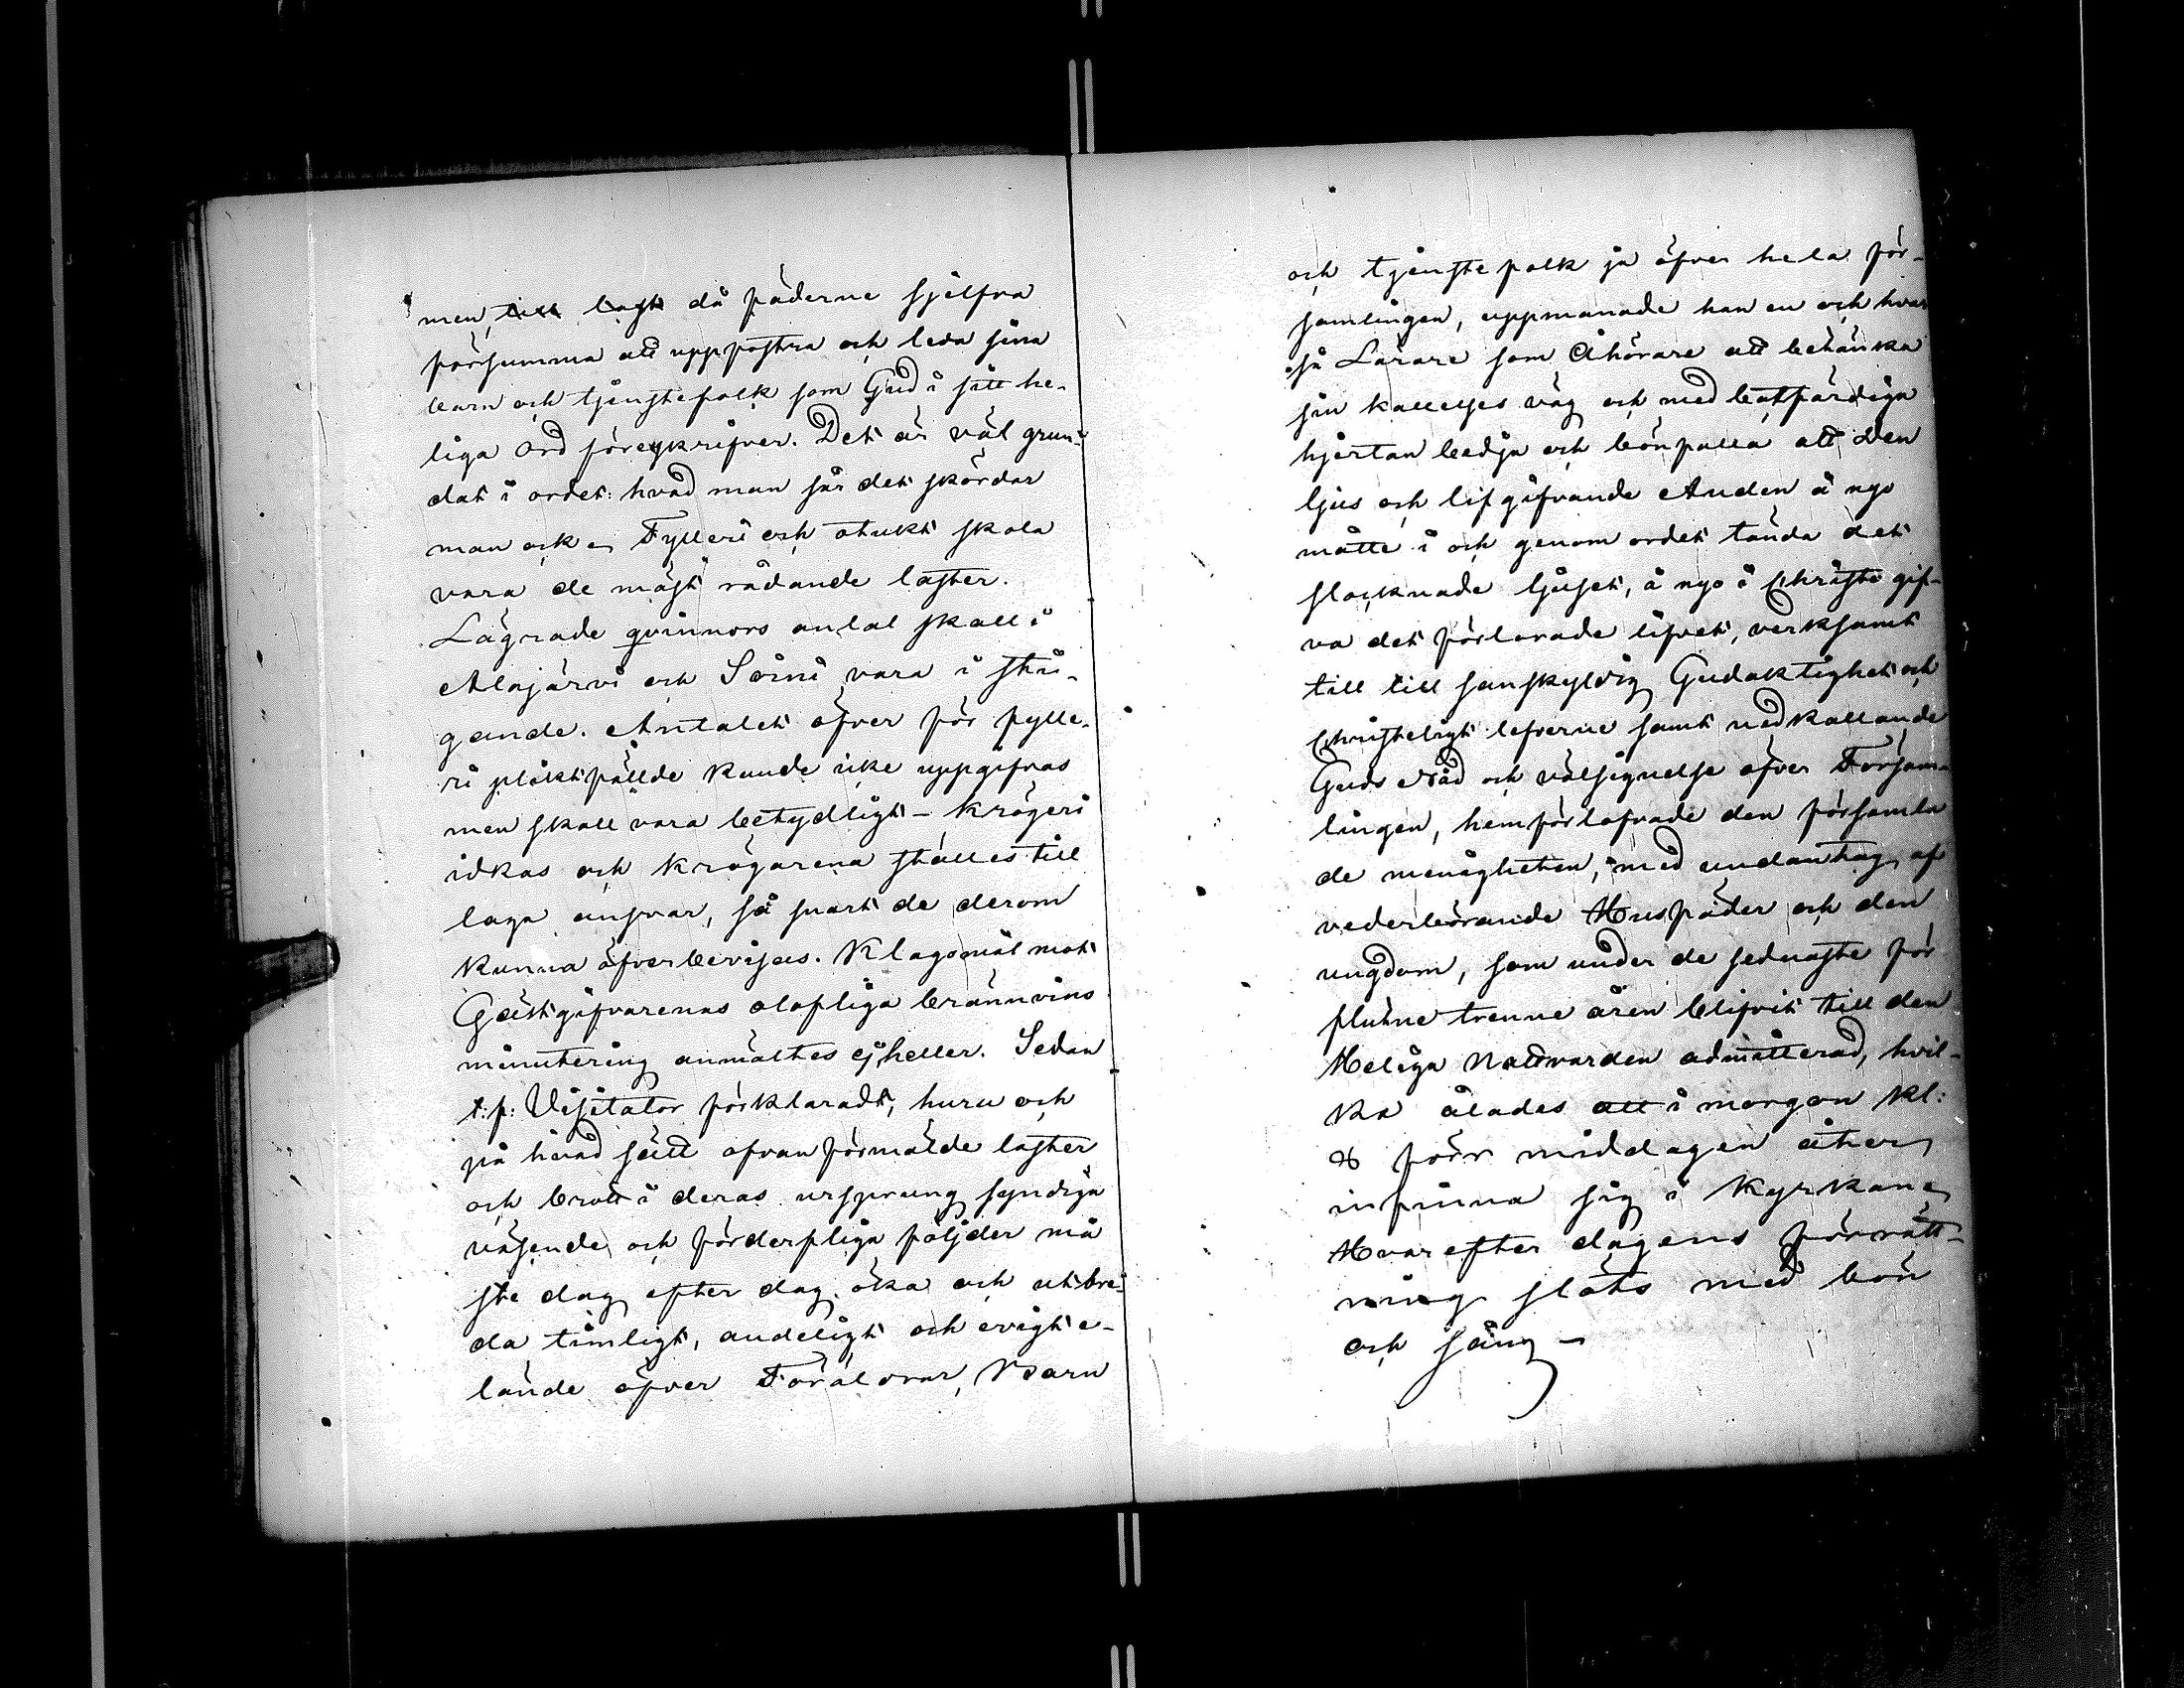 men, till last då fäderne sjelfva
försumma att uppfostra och leda sina
barn och tjenstefolk som Gud i sitt he-
liga Ord föreskrifver. Det är väl grun-
dat i ordet: hvad man sår det skördar
man ock. Fylleri och otukt skola
vara de mäst rådande laster.
Lägrade qvinnors antal skall i
Alajärvi och Soini vara i sti-
gande. Antalet öfver för fylle-
ri pliktfällde kunde icke uppgifvas
men skall vara betydligt – Krögeri
idkas och krögarena ställes till
laga ansvar, så snart de derom
kunna öfverbevisas. Klagomål mot
Gästgifvarenas olofliga brännvins
minutering anmältes ej heller. Sedan
t: f: Visitator förklaradt, huru och
på hvad sätt ofvanförmälde laster
och brott i deras ursprung syndiga
väsende och förderfliga följder må
ste dag efter dag öka och utbre-
da timligt, andeligt och evigt e-
lände öfver Föräldrar, Barn
och tjenstefolk ja öfver hela för-
samlingen, uppmanade han en och hvar
så Lärare som Åhörare att betänka
sin kallelses väg och med botfärdiga
hjertan bedja och bönfalla att Den
ljus och lifgifvande Anden å nyo
måtte i och genom ordet tända det
slocknade ljuset, å nyo i Christo gif-
va det förlorade lifvet, verksamt
till till sanskyldig Gudaktighet och
Christeligt lefverne samt nedkallande
Guds Nåd och välsignelse öfver Försam-
lingen, hemförlofvade den församla
de menigheten, med undantag af
vederbörande Husfäder och den
ungdom, som under de sednaste för
flutne trenne åren blifvit till den
Heliga Nattvarden admitterad, hvil-
ka ålades att i morgon kl:
8 förr middagen åter
infinna sig i Kyrkan
Hvarefter dagens förrätt-
ning slöts med bön
och sång –